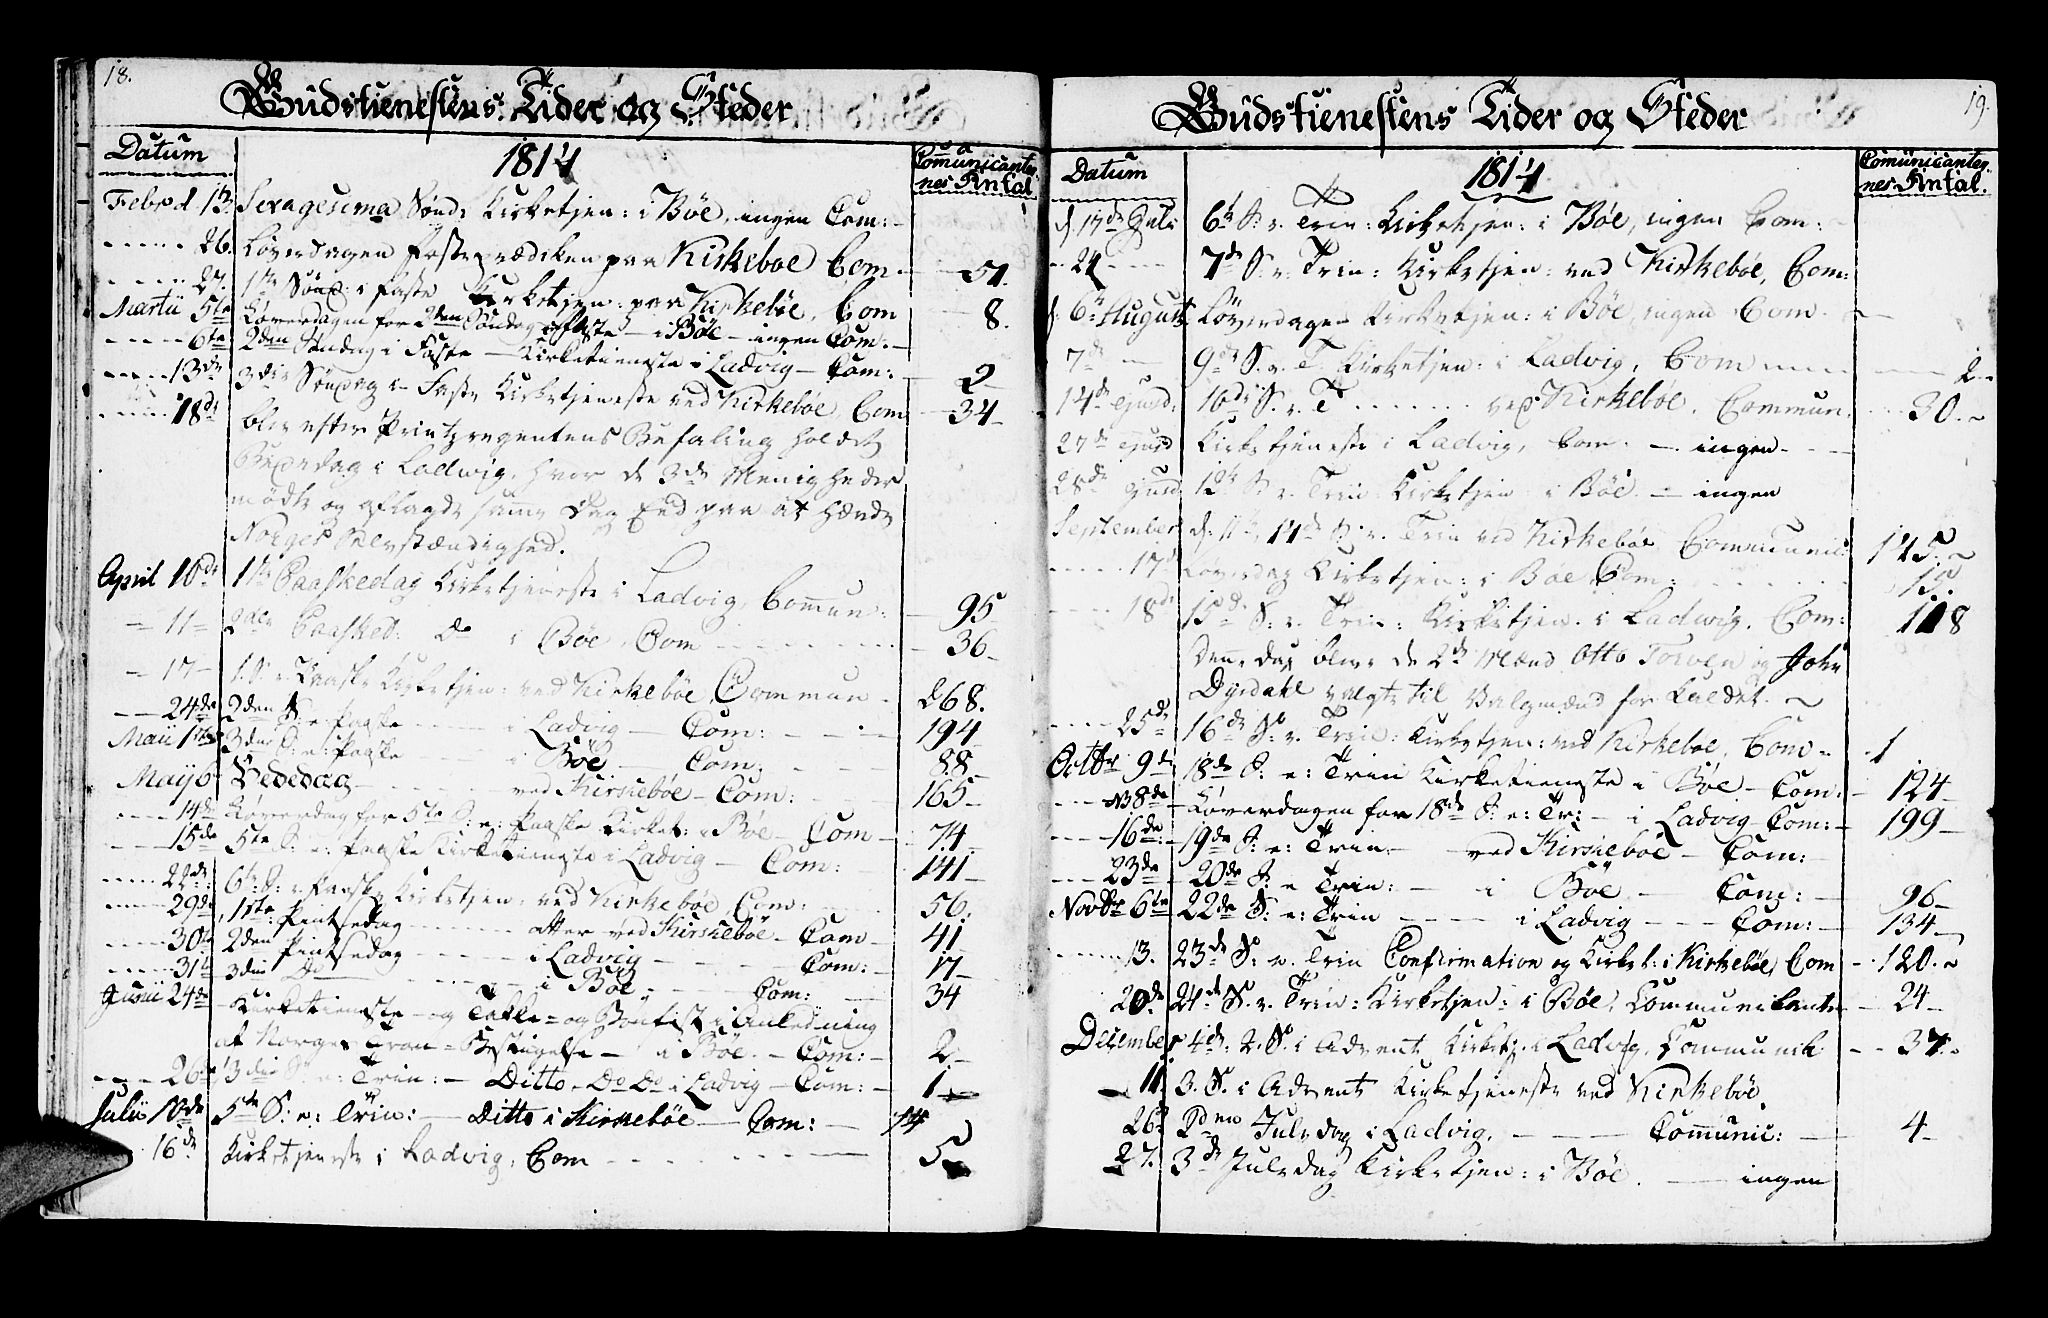 18.
Gudstienestens Tider og Steder
Datum
1814
Comunicanter
nes Antal
Febr d. 13. Sexagesima Sønd: Kirketjen: i Bøe, ingen Com:
26. Løverdagen Fasteprædiken paa Kirkeboe Com 51.
27. 1ste Sønd: i Faste Kirketjen: paa Kirkebøe, Com 8.
Martii 5te Løverdagen for 2den Søndag i Faste - i Bøe - ingen Com. -
6te 2den Søndag i Faste - Kirketieneste i Ladvig - Com: 2
13de 3die Søndag i Faste Kirketjeneste ved Kirkebøe, Com 34
18de blev efter Printzregentens Befaling holdet
Bededag i Ladwig, hvor de 3de Menigheder
mødte og aflagde samme Dag Eed paa at hævde
Norges Selvstændighed.
April 10de 1ste Paaskedag Kirketjeneste i Ladvig, Commun: 95
11 2den Paasked: Do i Bøe, Com 36
17 1. S. e. Paaske Kirketjen: ved Kirkebøe, Commun 268.
24de 2den S: e: Paaske i Ladvig - Com: 194
Maii 1ste 3die S: e: Paaske i Bøe - Com: 88
Maij 6 Bededag ved Kirkebøe - Com: 165
14de Løverdag for 5te S: e: Paaske Kirket: i Bøe - Com 74
15de 5te S: e: Paaske Kirketieneste i Ladvig - Com: 141
22de 6te S: e. Paaske Kirketjen: ved Kirkebøe Com: 56.
29de 1ste Pintsedag atter ved Kirkebøe - Com 41
30te 2den Pintsedag i Ladvig - Com: 17
31te 3die Do i Bøe - Com: 34
Junii 24de Kirketieneste og Takke- og Bønfest i Anledning
af Norges Tron-Bestigelse - i Bøe - Com: 2
26de 3die S: e: Trin: - Ditto - Do Do i Ladvig - Com: 1
Julii 10de 5te S: e: Trin: - Ditto i Kirkebøe - Com: 14
16de Kirketjeneste i Ladvig, Com 5
19.
Gudstienestens Tider og Steder
Datum
1814
Comunicanter
nes Antal.
d. 17de Juli 6te S. e. Trin: Kirketjen: i Bøe, ingen Com:
24 7de S. e. Trin: Kirketjen: ved Kirkebøe, Com:
d. 6te August Løverdagen Kirketjen: i Bøe, ingen Com.
7de 9de S. e. T. Kirketjen: i Ladvig, Com 2
14de ejusd: 10de S. e. T ved Kirkebøe, Commun. 30.
27de ejusd Kirketjeneste i Ladvig, Com: - ingen
28de ejusd 12te S. e. Trin: Kirketjen: i Bøe - ingen
September d: 11te, 14de S. e. Trin ved Kirkebøe Communic: 145.
17de Løverdag Kirketjen: i Bøe Com: 15.
18de 15de S: e. Trin: Kirketjen: i Ladwig, Com: 118
Denne dag bleve de 2de Mænd Otto Torven og John
Dyrdahl valgte til Valgmænd for Kaldet.
25de 16de S: e. Trin: Kirketjen: ved Kirkeboe, Com 1
Octbr 9de 18de S: e: Trin Kirketieneste i Bøe - Com: 124
NB 8de Løverdagen for 18de S: e: Tr: - i Ladvig Com: 199
16de 19de S: e: Trin: - ved Kirkebøe - Com:
23de 20de S: e Trin: - i Bøe - Com: 96
Novbr 6te 22de S: e: Trin i Ladvig Com: 134
13. 23de S: e. Trin Confirmation og Kirket: i Kirkebøe, Com 120.
20de 24de S. e. Trin: Kirketjen: i Bøe, Communicanter 24
December 4de: 2. S. i Advent Kirketj. i Ladvig, Communik 37.
11. 3. S. i Advent Kirketjeneste ved Kirkebøe.
26de 2den Juledag i Ladvig. Comunic: 4
27. 3de Juledag Kirketjen: i Bøe. ingen